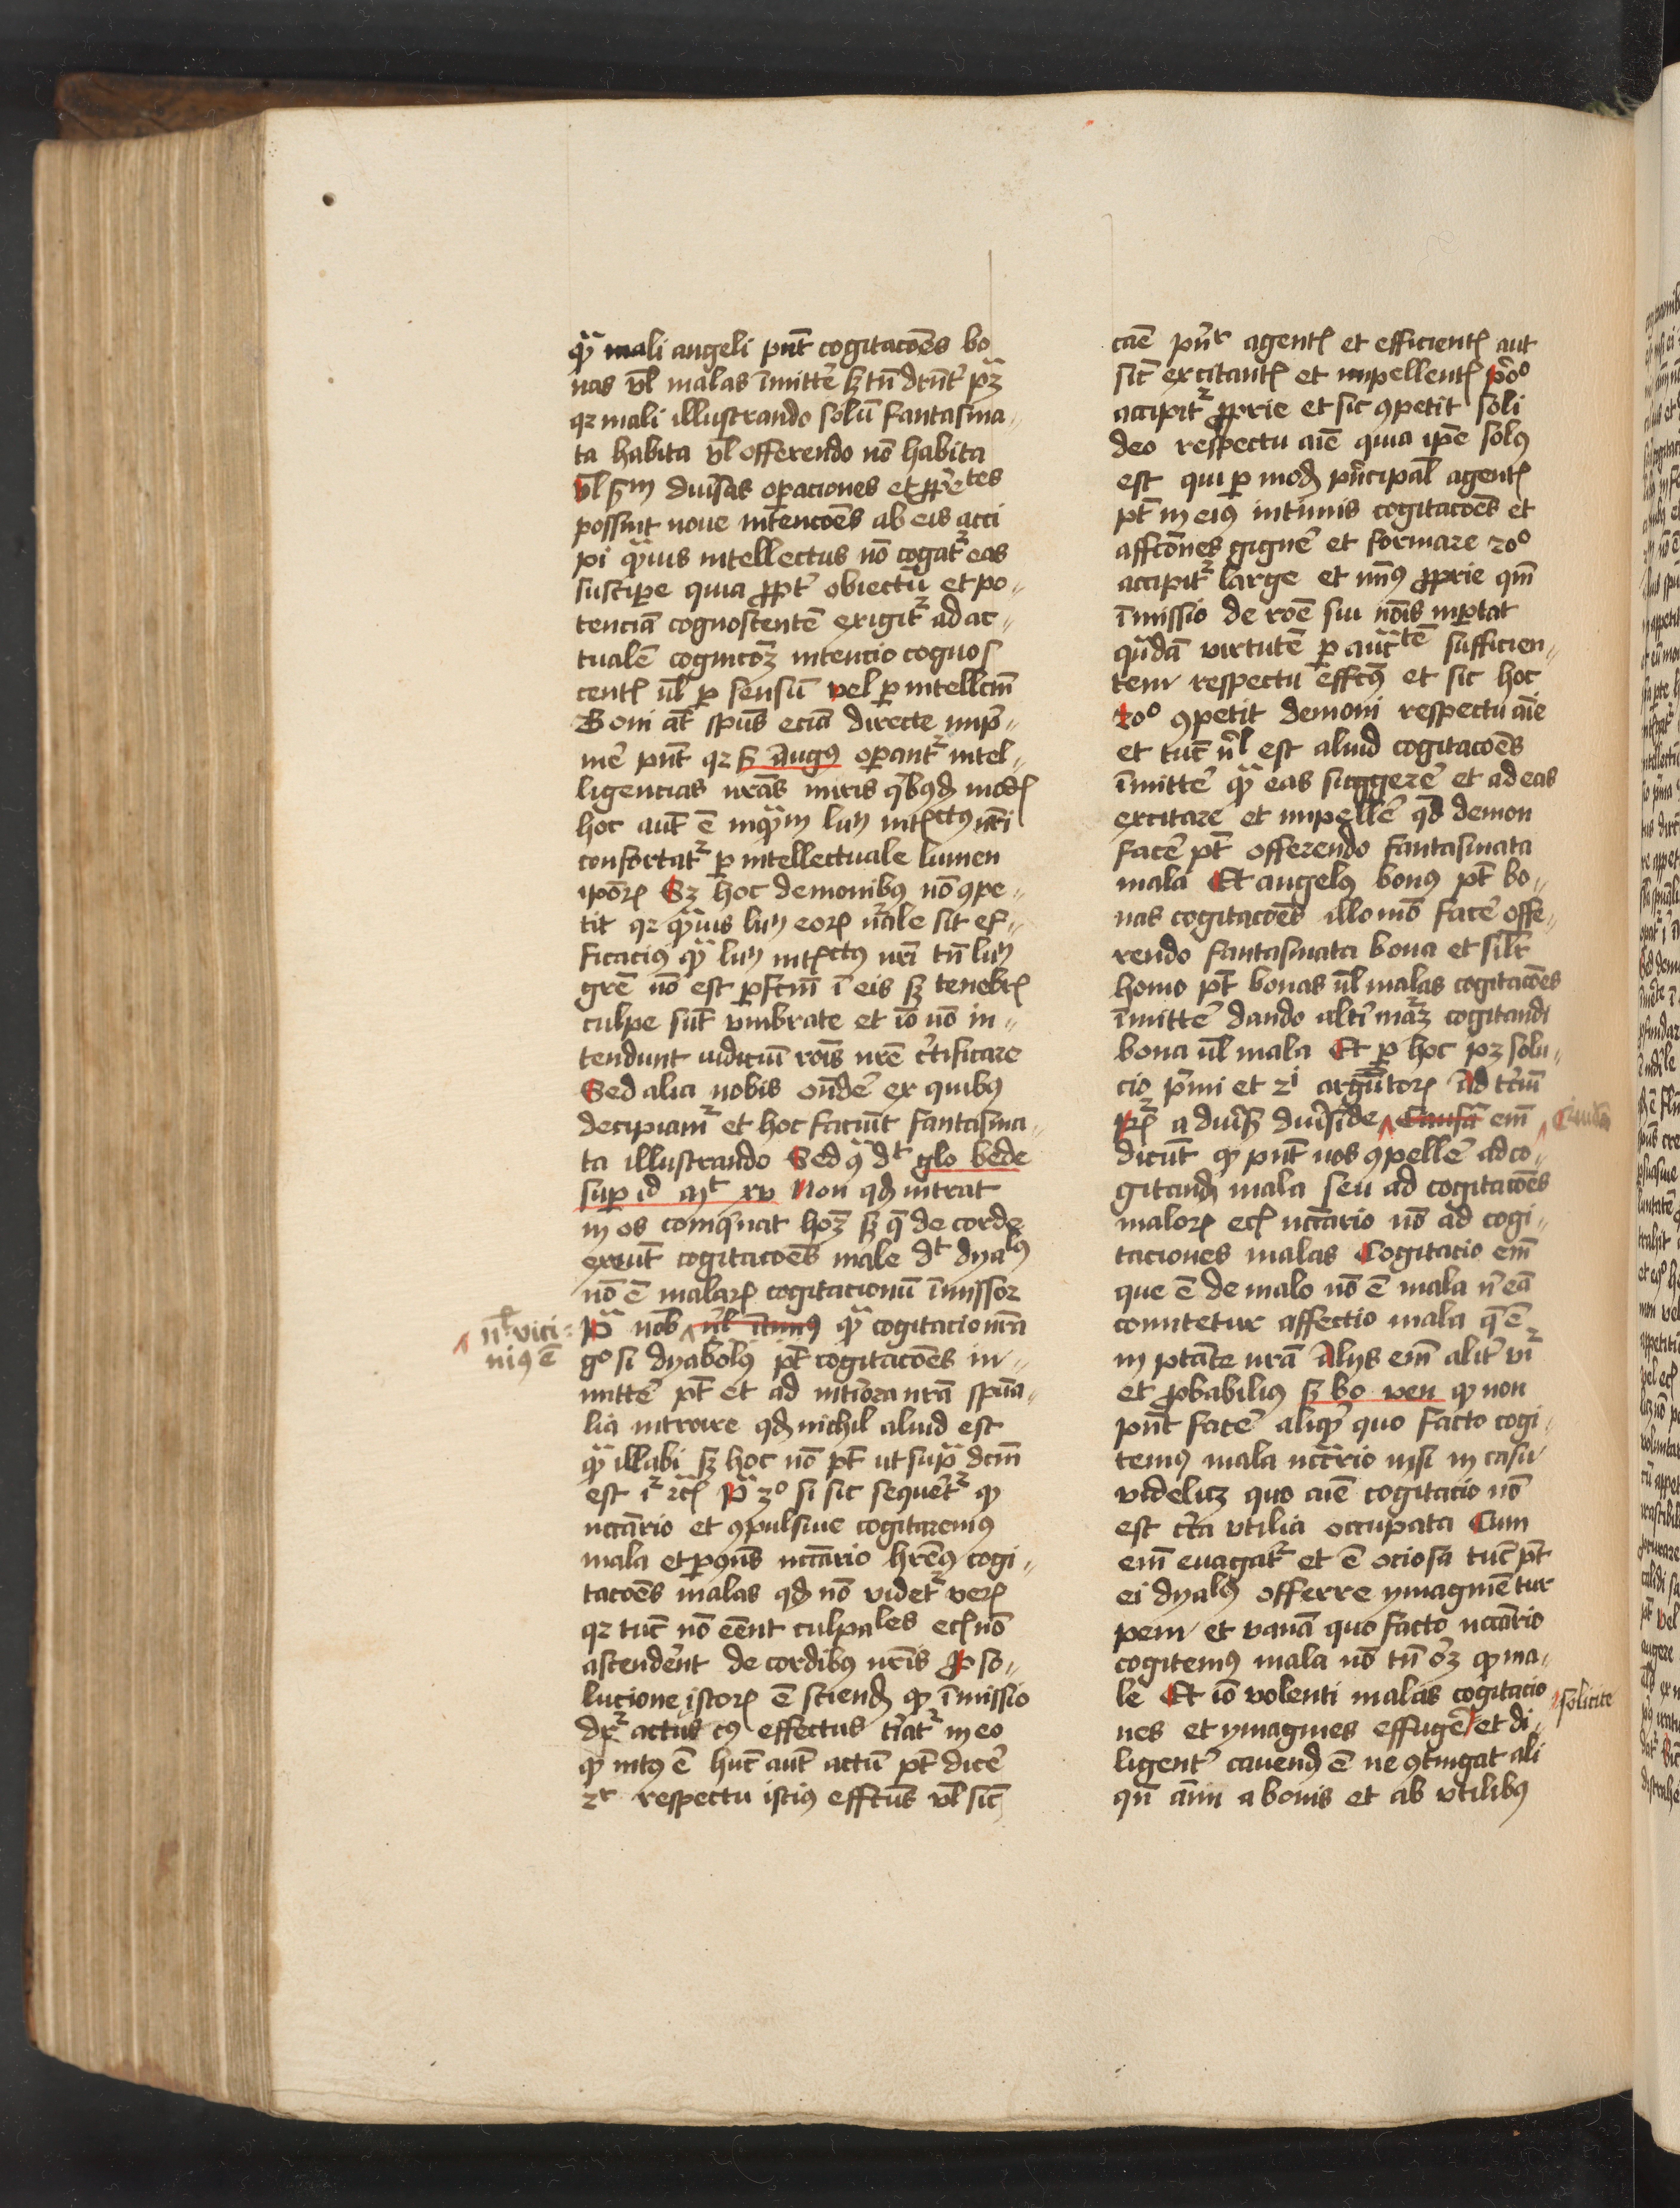 qᷓ mali angeli pn̄t cogitacōēs bo
nas vl̄ malas īmitte᷑ sꝫ tn̄ dn̄t᷑ pꝫ
qꝛ mali illustrando solū fantasma-
ta habita vl̄ offerendo nō habita
vl̄ sm̄ diu᷑sas oꝑaciones et ꝓp᷑etes
possint noue intencōēs ab eis acci
pi qᷓuis intellectus nō cogat᷑ eas
suscipe quia ꝓpt᷑ obiectū et po-
tenciā cognoscentē exigit᷑ ad ac-
tualē cognicōꝫ intencio cognos
centꝭ ul̄ ꝑ sensū vel ꝑ intellcm̄
Boni at̄ spūs eciā directe imp᷑-
me᷑ pn̄t qꝛ ẜ augꝰ oꝑant᷑ intel-
ligencias nr̄as miris qͥbꝰdꝫ modꝭ
hoc aut̄ ē inqᷓm lum̄ intꝭctꝰ nr̄i
confortat᷑ ꝑ intellectuale lumen
ipōꝝ Sꝫ hoc demonibꝰ nō ꝯpe-
tit qꝛ qᷓuis lum̄ eoꝝ nᷓale sit ef-
ficaciꝰ qᷓ lum̄ intꝭctꝰ nr̄i tn̄ lum̄
gr̄e nō est ꝑfctm̄ ī eis sꝫ tenebrꝭ
culpe sūt vmbrate et iō nō in-
tendunt iudiciū rōis nr̄e c᷑tificare
Sed alia nobis on̄de᷑ ex quibꝰ
decipiam᷑ et hoc faciūt fantasma-
ta illustrando Sed qᷓ dt glo bede
suꝑ id mt xv Non qdꝫ intrat
in os comqͥnat hoꝫ sꝫ q̄ de corde
exeūt cogitacōēs male dt dyalꝰ
nō ē malaꝝ cogitacionū īmissor
nl̄ vici-
niꝰ ē
Pᷓ nob̄ nl̄ itimꝰ qᷓ cogitacio nr̄a
gͦ si dyabolꝰ pt̄ cogitacōēs in-
mitte᷑ pt̄ et ad int᷑iora nr̄a spūa-
lia introire qdꝫ nichil aliud est
qᷓ illabi sꝫ hoc nō pt̄ ut supᷓ dcm̄
est Pᷓ 3ͦ si sic sequer̄t᷑ qꝫ
nccārio et ꝯpulsiue cogitaremꝰ
mala et ꝑ ꝯn̄s nccārio hr̄emꝰ cogi-
tacōēs malas qdꝫ nō videt᷑ veꝝ
qꝛ tūc nō eēnt culpales ecꝭ nō
ascender̄nt de cordibꝰ nr̄is Pᷓ so-
lucione istoꝝ ē sciendꝫ qꝫ īmissio
dr᷑ actus cꝰ effectus t᷑iat᷑ in eo
qꝫ intꝰ ē hūc aut̄ actū pt̄ dice᷑
2r respectu istiꝰ effctus vl̄ sic̄
cāē pn̄r agentꝭ et efficientꝭ aut
sic̄ excitantꝭ et impellentꝭ pͥoͦ
accipit᷑ ꝓprie et sic ꝯpetit soli
deo respectu aīe quia ipē solꝰ
est qui ꝑ modꝫ pͥncipal̄ agentꝭ
pt̄ in eiꝰ intimis cogitacōēs et
affcōnes gigne᷑ et formare 2oͦ
accipit᷑ large et minꝰ ꝓprie qm̄
īmissio de rōe sui nōis īꝑtat
qᷓdā virtutē ꝑ auctē sufficien-
tem respectu effctꝰ et sic hoc
2oͦ ꝯpetit demoni respectu aīe
et tūc nl̄ est aliud cogitacōēs
īmitte᷑ qᷓ eas suggere᷑ et ad eas
excitare et impelle᷑ qd̄ demon
face᷑ pt̄ offerendo fantasmata
mala Et angelꝰ bonꝰ pt̄ bo-
nas cogitacōēs illo mō face᷑ offe-
rendo fantasmata bona et silr̄
homo pt̄ bonas ul̄ malas cogitacōēs
īmitte᷑ dando alt᷑i maꝫ cogitandi
bona ul̄ mala Et ꝑ hoc pꝫ solu-
cio pͥmi et 2i argūtoꝝ Ad t᷑ciū
Rꝭ a diu᷑sꝭ diu᷑si de Causa em̄ Quidā
dicūt qꝫ pn̄t nos ꝯpelle᷑ ad co-
gitandꝫ mala seu ad cogitacōēs
maloꝝ ecꝭ nccārio nō ad cogi-
taciones malas Cogitacio em̄
que ē de malo nō ē mala n᷑ eā
comitetur affectio mala q̄ ē
in ptāte nrā Alijs em̄ alit᷑ vr᷑
et ꝓbabiliꝰ sꝫ bo ven qꝫ non
pn̄t face᷑ aliqꝫ quo facto cogi-
temꝰ mala nccārio nisi in casu
videlicꝫ quo aīe cogitacio nō
est c᷑ca vtilia occupata Cum
em̄ euagat᷑ et ē ociosa tūc pt̄
ei dyalꝰ offerre ymaginē tur
pem et vanā quo facto nccārio
cogitemꝰ mala nō tn̄ oꝫ qꝫ ma-
le Et iō volenti malas cogitacio solicite
nes et ymagines effuge᷑ et di-
ligent᷑ cauendꝫ ē ne ꝯtingat ali
qn̄ aīm a bonis et ab vtilibꝰ